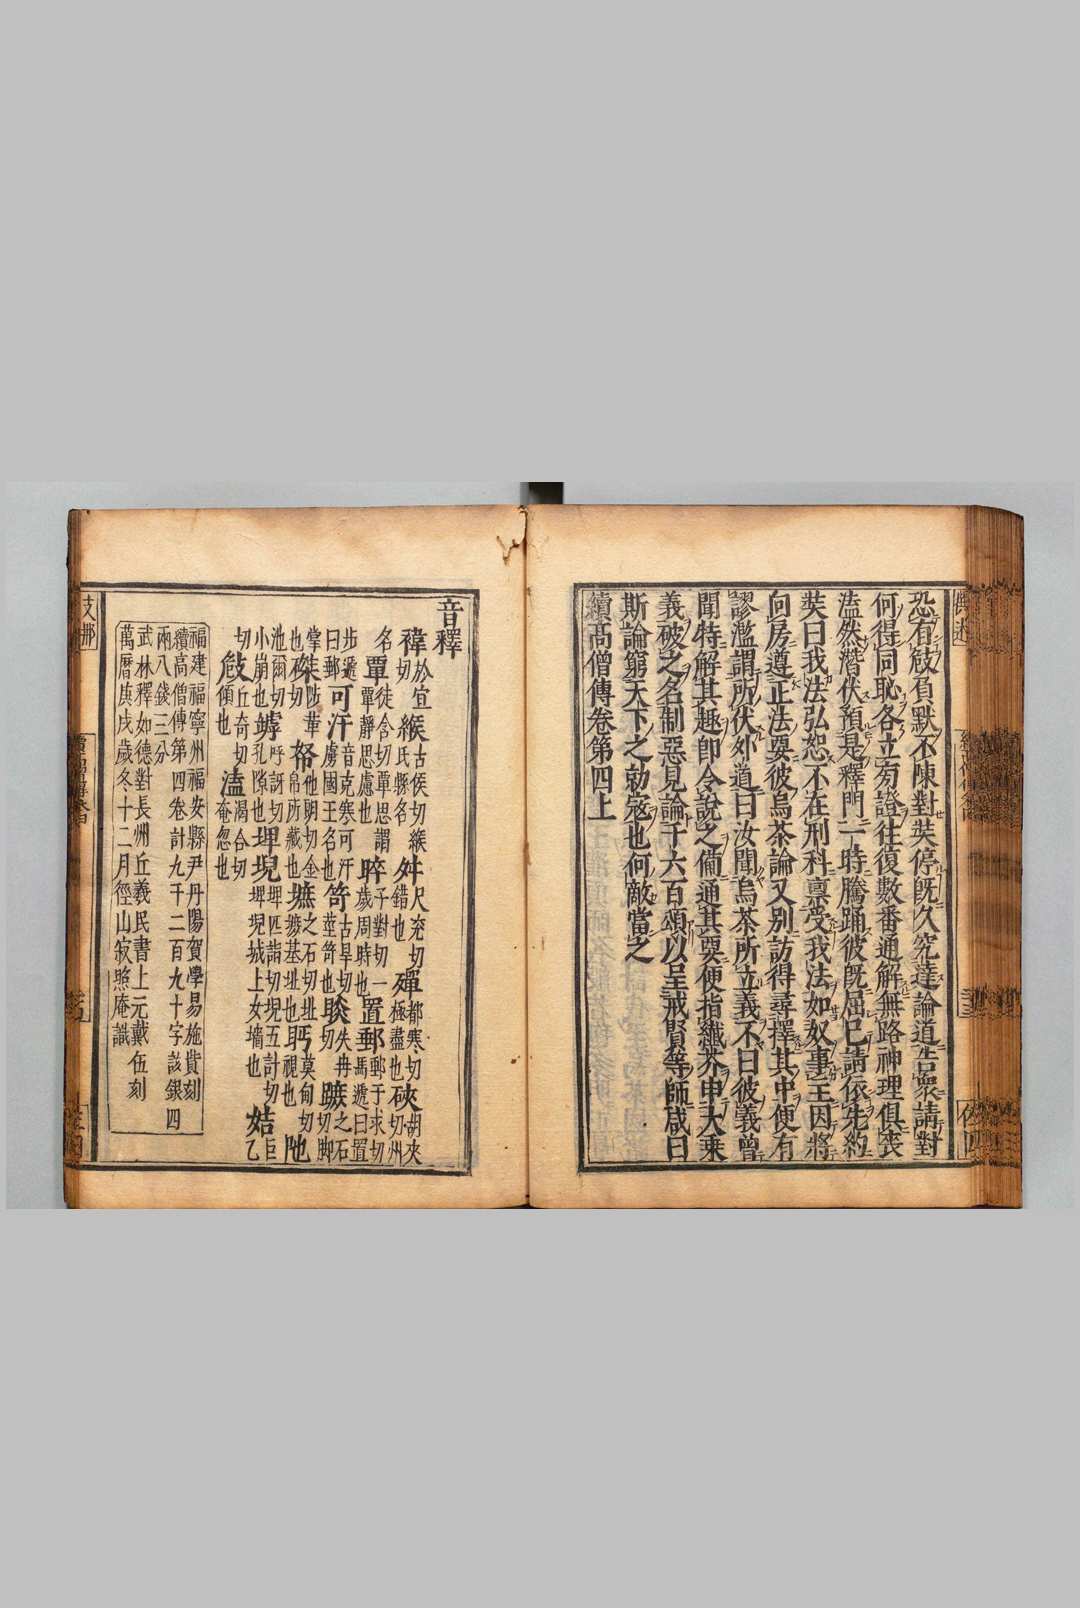 恐有敧負默不陳對奘停既久究達論道告衆請對
何得同恥各立旁證往復數番通解無路神理俱喪
溘然潛伏預是釋門一時騰踊彼既屈已請依先約
奘曰我法弘恕不在刑科禀受我法如奴事主因將
向房遵正法要彼烏茶論又別訪得尋擇其中便有
謬濫謂所伏外道曰汝聞烏茶所立義不曰彼義曾
聞特解其趣卽令說之備通其要便指纖芥申大乗
義破之名制惡見論千六百頌以呈戒賢等師咸曰
斯論窮天下之勍寇也何敵當之
續高僧傳卷第四上
音釋
禕於宜切 緱古侯切緱氏縣名 舛尺兖切錯也 殫都寒切極盡也 硤胡夾切州名
覃徒含切覃思謂覃靜思慮也 晬子對切一歲周時也 置郵郵于求切馬遞曰置步遞曰郵
可汗音克寒可汗虜國王名也 笴古旱切莖笴也 睒失冉切 蹠之石切脚掌也
桀陟革切 帑他朗切金帛所藏也 墌之石切墌基址也 眄莫甸切視也 陁池爾切小崩也
罅呼訝切孔隙也 埤堄埤匹詣切堄五計切埤堄城上女墻也 姞巨乙切
攲丘奇切傾也 溘渴合切奄忽也
福建福寧州福安縣尹丹陽賀學易施貲刻
續高僧傳第四卷計九千二百九十字該銀四
兩八錢三分
武林釋如德對長洲丘義民書上元戴伍刻
萬曆庚戌歲冬十二月徑山寂照庵識